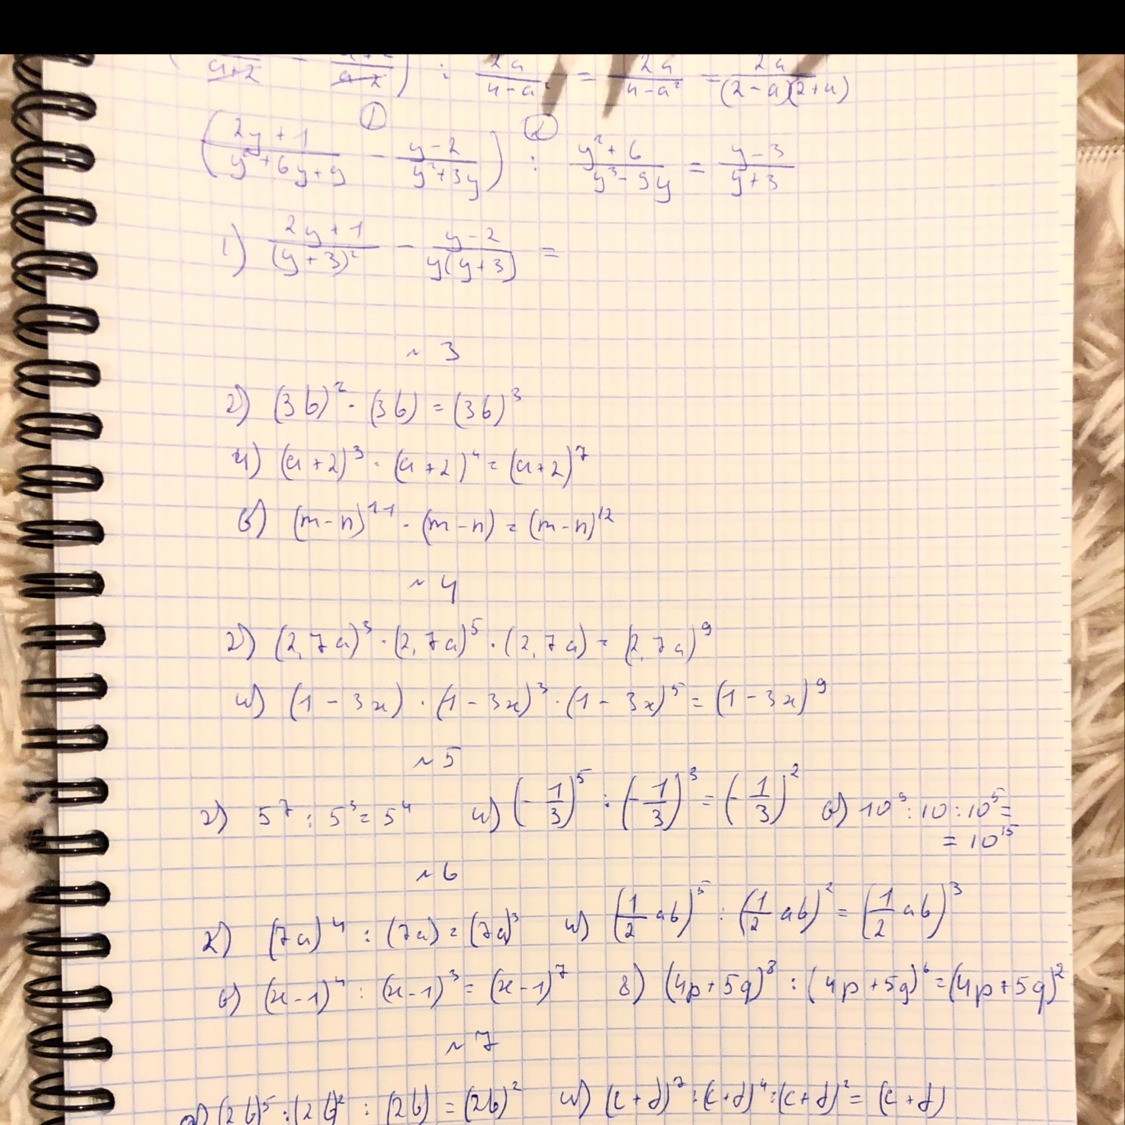 : 2a/(4-a²) = 2a/(4-a²) = 2a/((2-a)(2+a))
① ②
((2y+1)/(y²+6y+9) - (y-2)/(y²+3y)) : (y²+6)/(y³-9y) = (y-3)/(y+3)
1) (2y+1)/(y+3)² - (y-2)/(y(y+3)) =
~ 3
2) (3b)² · (3b) = (3b)³
4) (a+2)³ · (a+2)⁴ = (a+2)⁷
6) (m-n)¹¹ · (m-n) = (m-n)¹²
~ 4
2) (2,7a)³ · (2,7a)⁵ · (2,7a) = (2,7a)⁹
4) (1-3x) · (1-3x)³ · (1-3x)⁵ = (1-3x)⁹
~ 5
2) 5⁷ : 5³ = 5⁴ 4) (-1/3)⁵ : (-1/3)³ = (-1/3)² 6) 10⁹ : 10 : 10⁵ =
= 10¹⁵
~ 6
2) (7a)⁴ : (7a) = (7a)³ 4) (1/2 ab)⁵ : (1/2 ab)² = (1/2 ab)³
6) (x-1)⁴ : (x-1)³ = (x-1)⁷ 8) (4p+5q)⁸ : (4p+5q)⁶ = (4p+5q)²
~ 7
2) (2b)⁵ : (2b)² : (2b) = (2b)² 4) (c+d)⁷ : (c+d)⁴ : (c+d)² = (c+d)